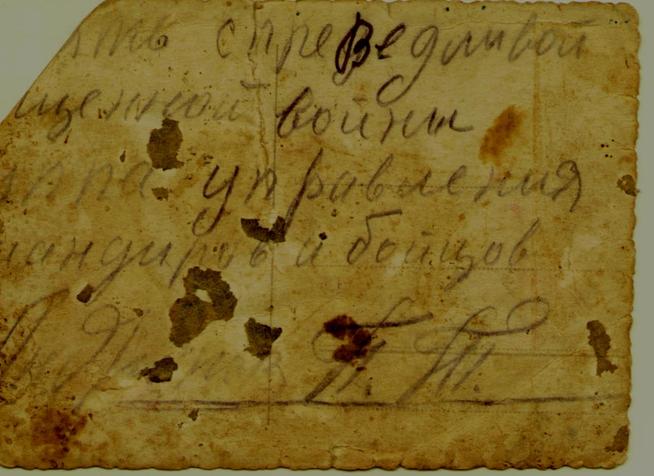 ять спреведливой
щенной войны
ппа управления
андиров и бойцов